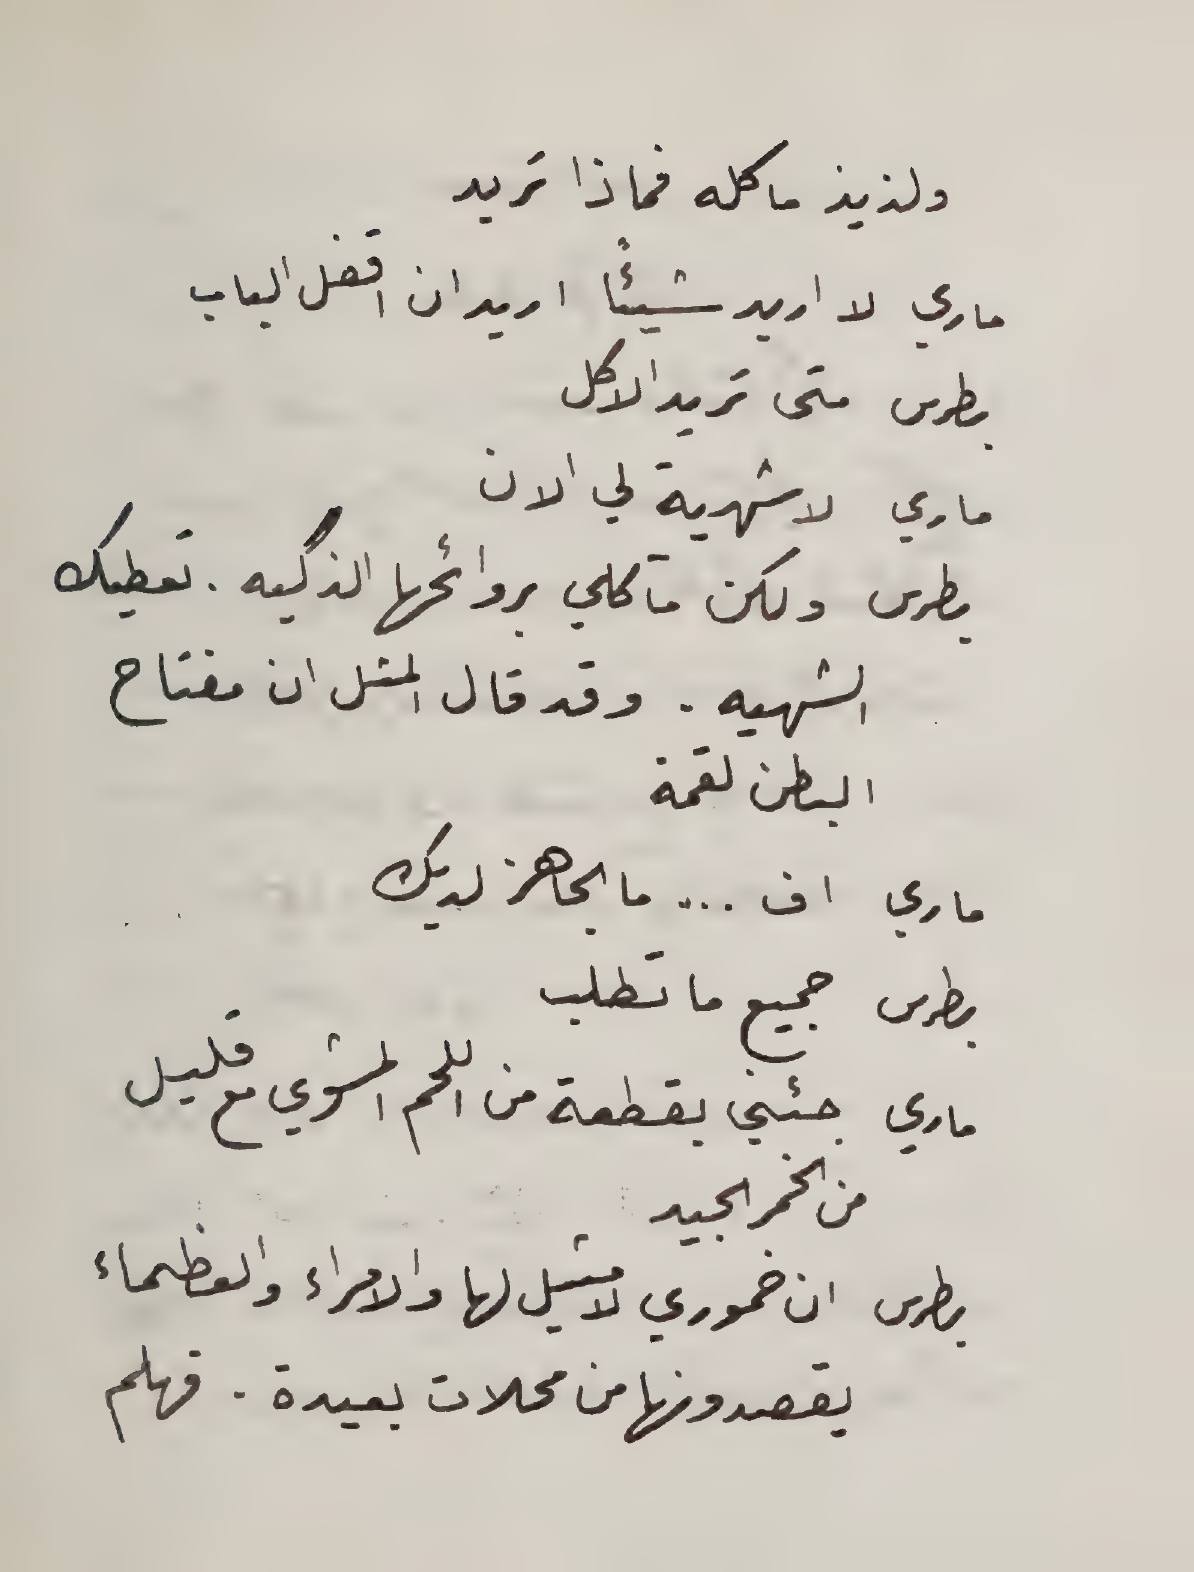 ولذيذ ماكله فماذا تريد
ماري لا اريد شيئاً اريد ان اقفل الباب
بطرس متى تريد الاكل
ماري لاشهية لي الان
بطرس ولكن مآكلي بروائحها الذكيه . تعطيك
الشهيه . وقد قال المثل ان مفتاح
البطن لقمة
ماري اف ... ما الجاهز لديك
بطرس جميع ما تطلب
ماري جئني بقطعة من اللحم المشوي مع قليل
من الخمر الجيد
بطرس ان خموري لا مثيل لها والامراء والعظماء
يقصدونها من محلات بعيدة . فهلم